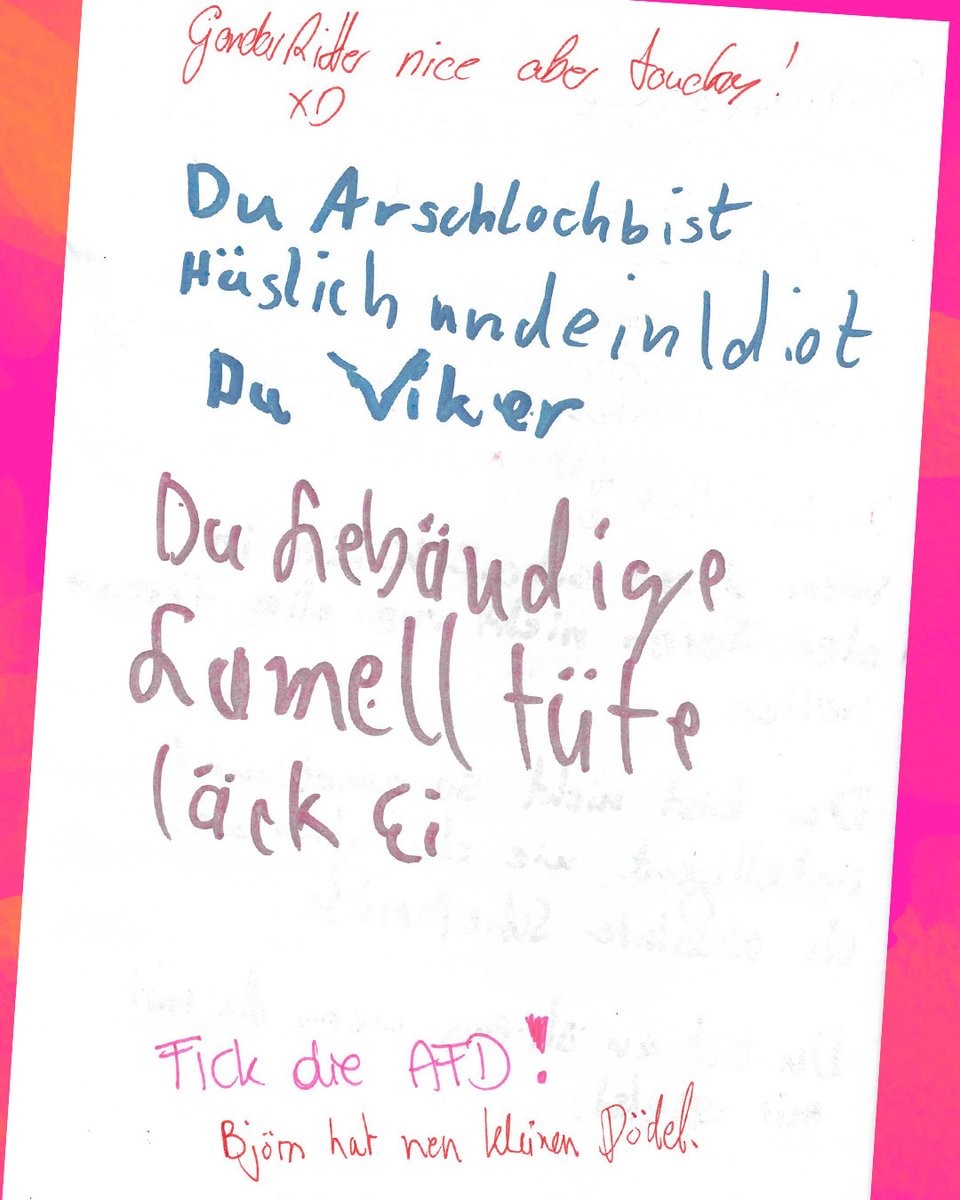 GenderRitter nice aber touchy!
XD
Du Arschloch bist
Häslich und ein Idiot
Du Viker
Du Lebändige
Lamell tüte
läck Ei
Fick die AFD!
Björn hat nen kleinen Dödel.